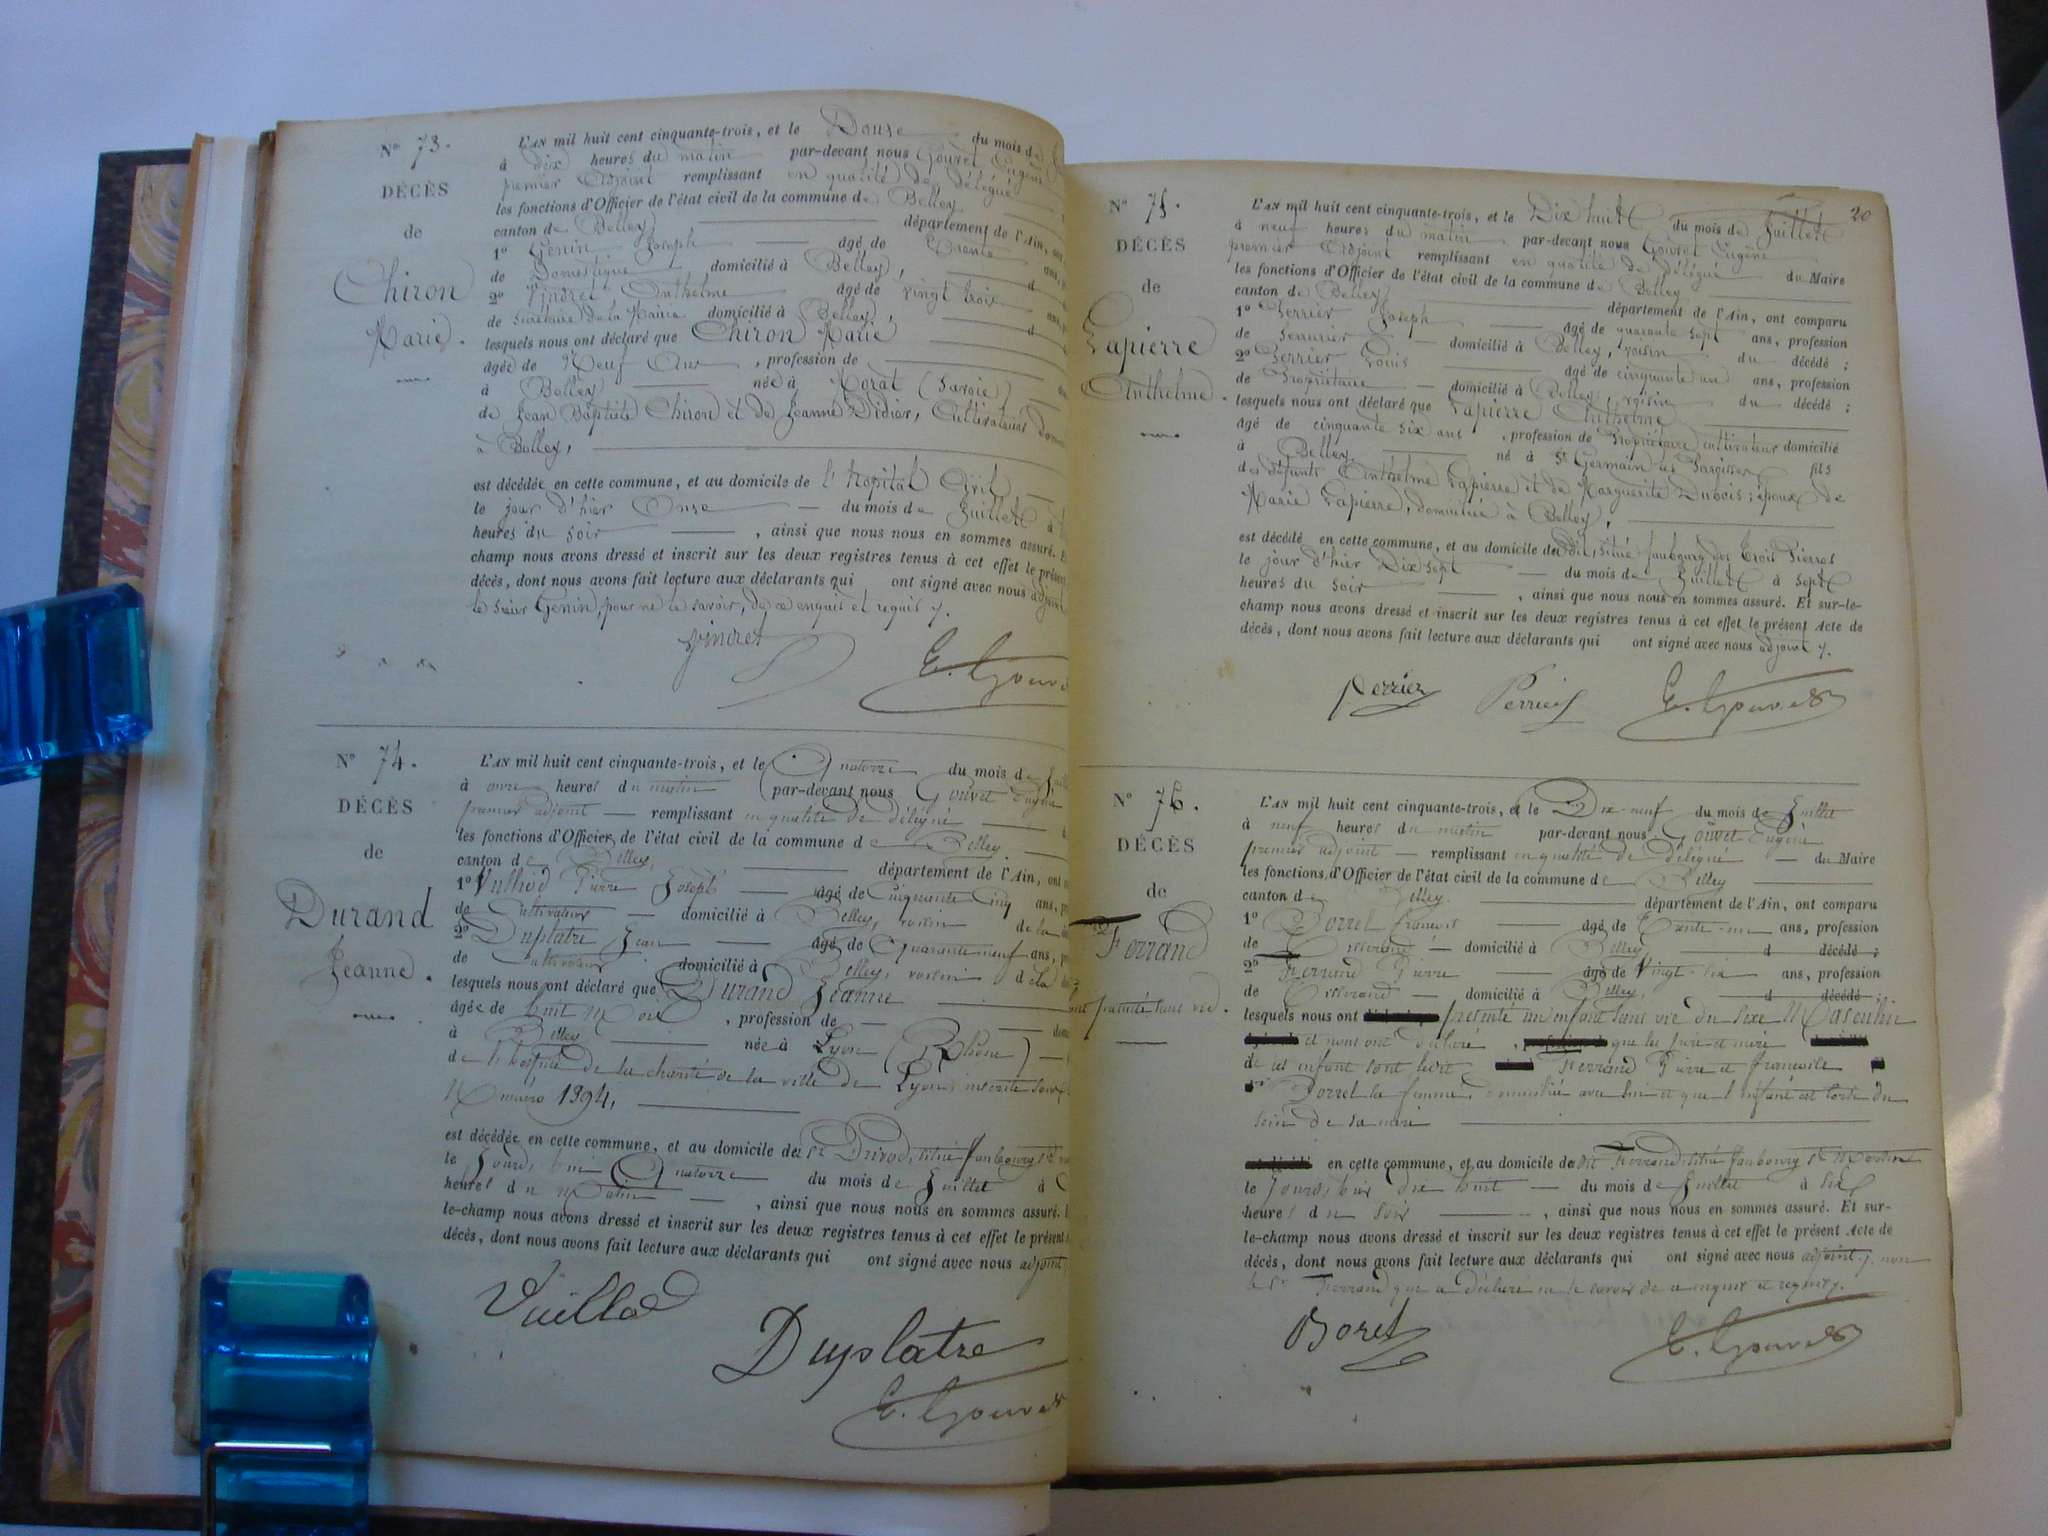 N° 73.
DÉCÈS
de
Chiron
Marie.
L'AN mil huit cent cinquante-trois, et le Douze du mois de
à dix heures du matin par-devant nous Gouvet Eugène
premier Adjoint remplissant en qualité de délégué
les fonctions d'Officier de l'état civil de la commune de Belley
canton de Belley, département de l'Ain, ont
1° Genin Joseph âgé de Trente ans,
de Domestique domicilié à Belley, d
2° Vindret Anthelme âgé de vingt trois ans,
de Secrétaire de la Mairie domicilié à Belley, d
lesquels nous ont déclaré que Chiron Marie
âgée de Neuf Ans, profession de
à Belley née à (Savoie)
de Jean Baptiste Chiron et de Jeanne Didier, Cultivateurs
à Belley,
est décédée en cette commune, et au domicile de l'hopital Civil
le jour d'hier Onze du mois de Juillet à
heures du soir, ainsi que nous nous en sommes assuré. E
champ nous avons dressé et inscrit sur les deux registres tenus à cet effet le présent
décès, dont nous avons fait lecture aux déclarants qui ont signé avec nous adjoint
le sieur Genin, pour ne le savoir, de ce enquis et requis
Vindret
E. Gouve
N° 74.
DÉCÈS
de
Durand
Jeanne.
L'AN mil huit cent cinquante-trois, et le Quatorze du mois de
à onze heures du matin par-devant nous Gouvet Eugène
premier adjoint remplissant en qualité de délégué
les fonctions d'Officier de l'état civil de la commune de Belley
canton de Belley, département de l'Ain, ont
1° Pierre Joseph âgé de Cinquante Cinq ans,
de Cultivateur domicilié à Belley, voisin de la
2° Duplatre Jean âgé de Quarante neuf ans,
de Cultivateur domicilié à Belley, voisin de la
lesquels nous ont déclaré que Durand Jeanne
âgée de huit Mois, profession de
à Belley née à Lyon (Rhône)
de l'hospice de la charité de la ville de Lyon, inscrite sous
Numéro 1394,
est décédée en cette commune, et au domicile du Sr situé faubourg St
le Jourd'hui Quatorze du mois de Juillet à
heures du Matin, ainsi que nous nous en sommes assuré.
le-champ nous avons dressé et inscrit sur les deux registres tenus à cet effet le présent
décès, dont nous avons fait lecture aux déclarants qui ont signé avec nous adjoint
Duplatre
E. Gouvet
20
N° 75.
DÉCÈS
de
Lapierre
Anthelme.
L'AN mil huit cent cinquante-trois, et le Dix huit du mois de Juillet
à neuf heures du matin par-devant nous Gouvet Eugène
premier Adjoint remplissant en qualité de délégué du Maire
les fonctions d'Officier de l'état civil de la commune de Belley
canton de Belley département de l'Ain, ont comparu
1° Perrier Joseph âgé de quarante sept ans, profession
de Serrurier domicilié à Belley, voisin du décédé;
2° Perrier Louis âgé de cinquante un ans, profession
de Propriétaire domicilié à Belley, voisin du décédé;
lesquels nous ont déclaré que Lapierre Anthelme
âgé de cinquante six ans, profession de Propriétaire cultivateur domicilié
à Belley né à St Germain les Paroisses fils
des défunts Anthelme Lapierre et de Marguerite Dubois; époux de
Marie Lapierre, domiciliée à Belley,
est décédé en cette commune, et au domicile du dit, situé faubourg des Trois Pierres
le jour d'hier Dix sept du mois de Juillet à sept
heures du soir, ainsi que nous nous en sommes assuré. Et sur-le-
champ nous avons dressé et inscrit sur les deux registres tenus à cet effet le présent Acte de
décès, dont nous avons fait lecture aux déclarants qui ont signé avec nous adjoint
Perrier Perrier E. Gouvet
N° 76.
DÉCÈS
de
Ferrand
présenté sans vie.
L'AN mil huit cent cinquante-trois, et le Dix-neuf du mois de Juillet
à neuf heures du matin par-devant nous Gouvet Eugène
premier adjoint remplissant en qualité de délégué du Maire
les fonctions d'Officier de l'état civil de la commune de Belley
canton de Belley département de l'Ain, ont comparu
1° Borrel françois âgé de Trente-un ans, profession
de Tisserand domicilié à Belley d décédé;
2° Ferrand Pierre âgé de Vingt-six ans, profession
de Tisserand domicilié à Belley, d décédé;
lesquels nous ont présenté un enfant sans vie du sexe Masculin
et nous ont déclaré, que les père et mère
de cet enfant sont Ferrand Pierre et françoise
Borrel sa femme, domiciliée avec lui et que l'enfant est sorti du
sein de sa mère
en cette commune, et au domicile du dit Ferrand, situé faubourg St Martin
le Jourd'hier dix huit du mois de Juillet à six
heures du soir, ainsi que nous nous en sommes assuré. Et sur-
le-champ nous avons dressé et inscrit sur les deux registres tenus à cet effet le présent Acte de
décès, dont nous avons fait lecture aux déclarants qui ont signé avec nous adjoint, non
le Sr Ferrand qui a déclaré ne le savoir de ce enquis et requis.
Borel E. Gouvet